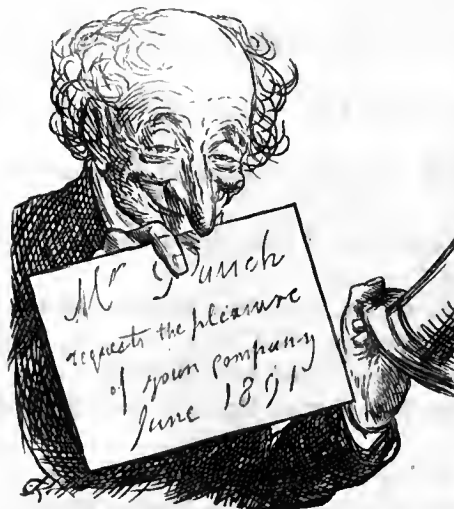 Mr Punch
requests the pleasure
of your company
June 1891